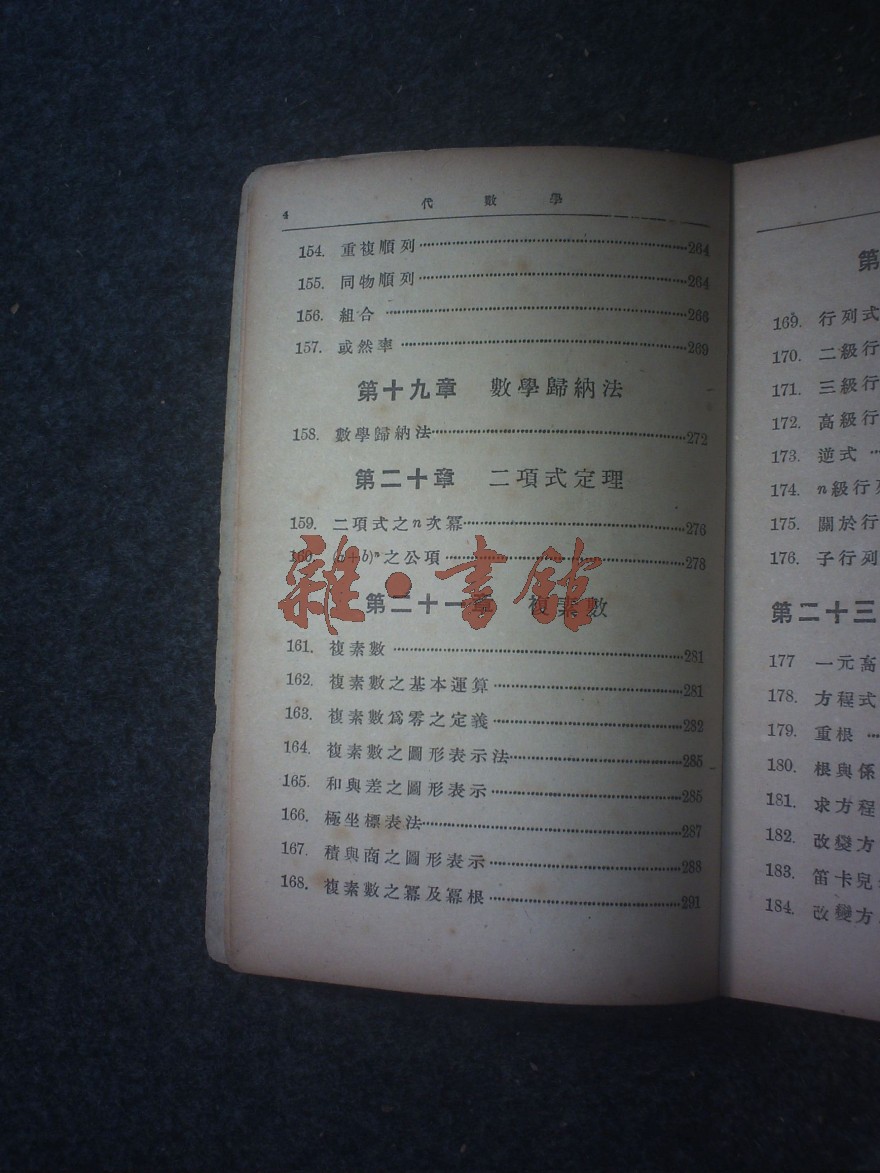 4 代數學
154. 重複順列 264
155. 同物順列 264
156. 組合 266
157. 或然率 269
第十九章 數學歸納法
158. 數學歸納法 272
第二十章 二項式定理
159. 二項式之n次冪 276
160. (a+b)ⁿ之公項 278
雜·書館
第二十一章 複素數
161. 複素數 281
162. 複素數之基本運算 281
163. 複素數爲零之定義 282
164. 複素數之圖形表示法 285
165. 和與差之圖形表示 285
166. 極坐標表法 287
167. 積與商之圖形表示 288
168. 複素數之冪及冪根 291
第
169. 行列式
170. 二級行
171. 三級行
172. 高級行
173. 逆式
174. n級行列
175. 關於行
176. 子行列
第二十三
177 一元高
178. 方程式
179. 重根
180. 根與係
181. 求方程
182. 改變方
183. 笛卡兒
184. 改變方